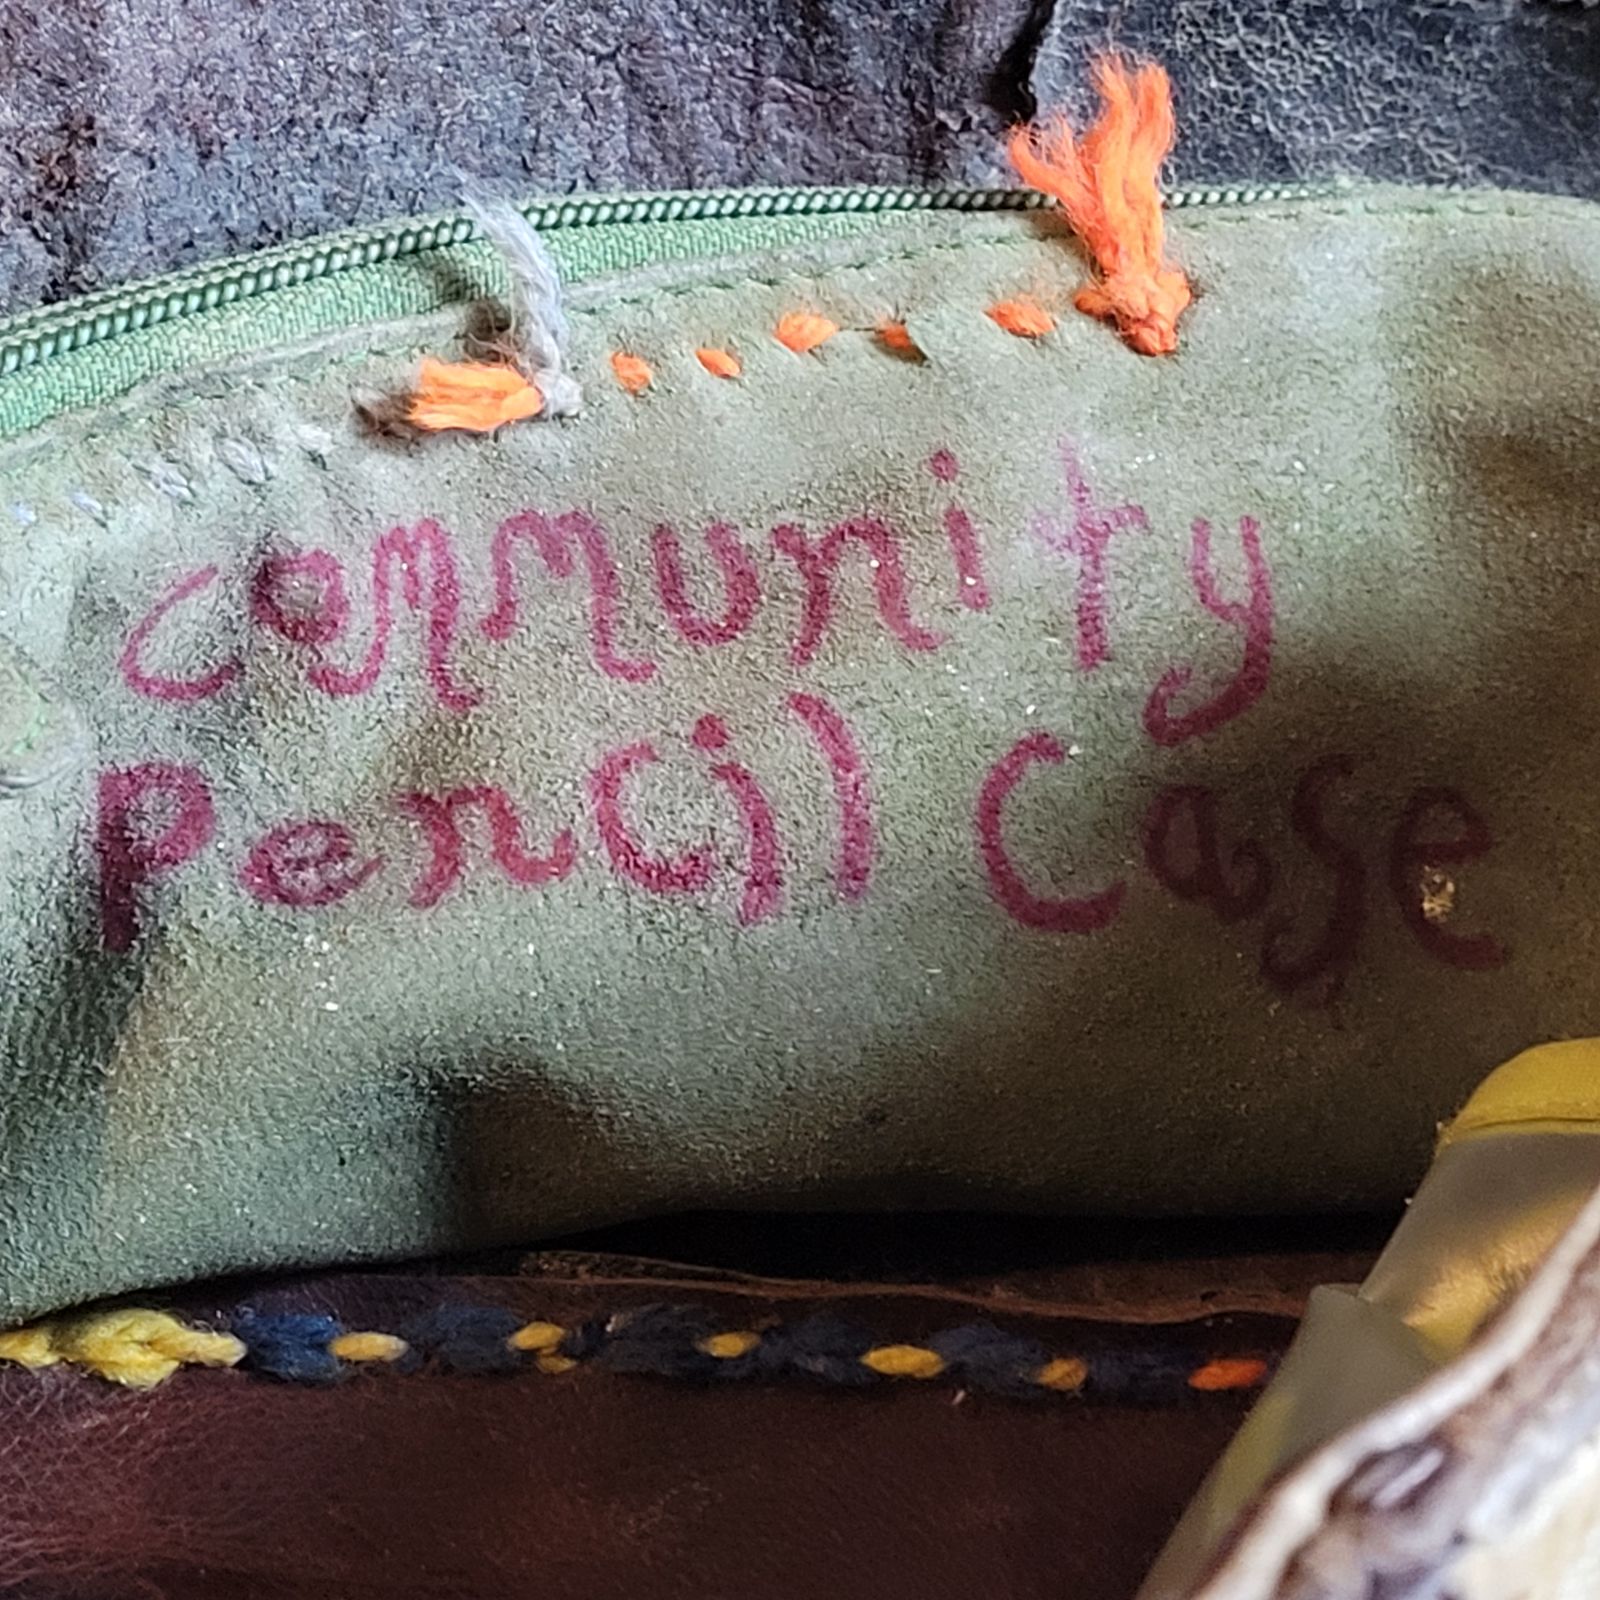 Community
Pencil Case